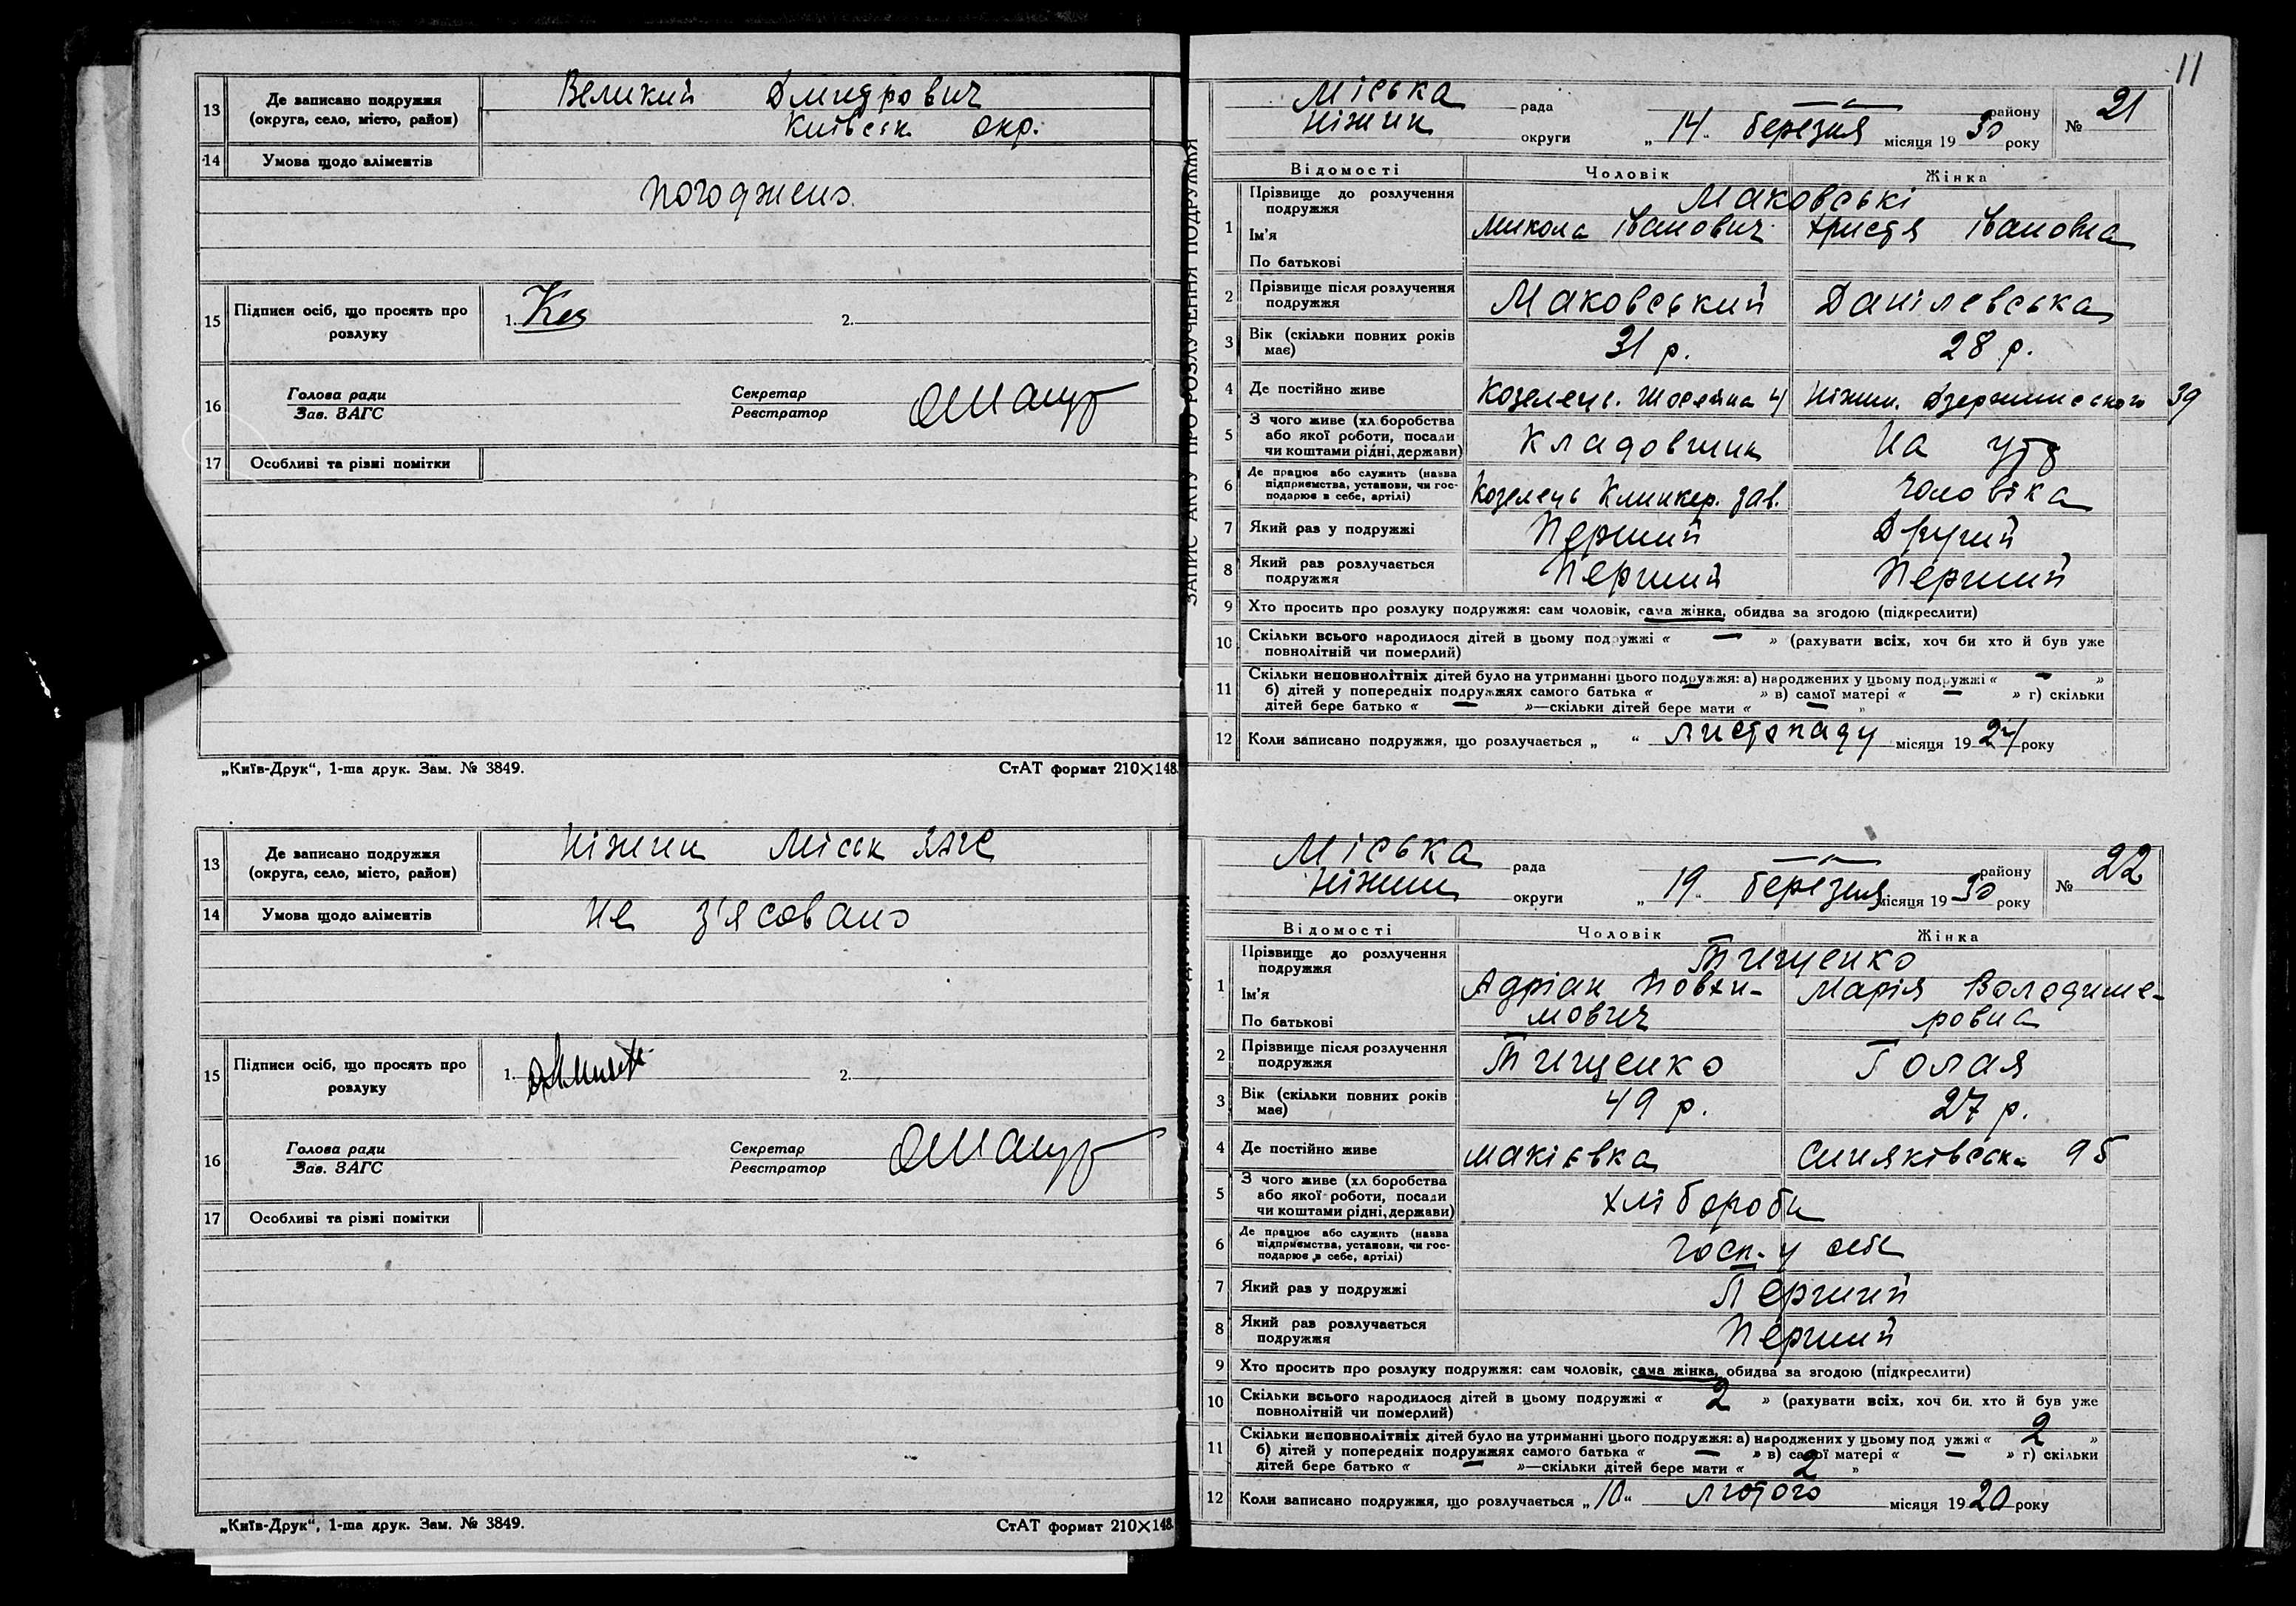 13 Де записано подружжя
(округа, село, місто, район)
Великий Дмитрович
Київськ окр.
14 Умова щодо аліментів
погоджено.
15 Підписи осіб, що просять про
розлуку
1.
2.
16 Голова ради
Зав. ЗАГС
Секретар
Реєстратор
17 Особливі та різні помітки
„Київ-Друк“, 1-ша друк. Зам. № 3849.
СтАТ формат 210×148.
13 Де записано подружжя
(округа, село, місто, район)
Ніжин Міськ ЗАГС
14 Умова щодо аліментів
не з'ясовано
15 Підписи осіб, що просять про
розлуку
1.
2.
16 Голова ради
Зав. ЗАГС
Секретар
Реєстратор
17 Особливі та різні помітки
„Київ-Друк“, 1-ша друк. Зам. № 3849.
СтАТ формат 210×148.
ЗАПИС АКТУ ПРО РОЗЛУЧЕННЯ ПОДРУЖЖЯ
11
Міська рада району № 21
Ніжин округи „14“ березня місяця 1930 року
Відомості Чоловік Жінка
1 Прізвище до розлучення
подружжя
Маковські
Ім'я
Микола Іванович Христя Івановна
По батькові
2 Прізвище після розлучення
подружжя
Маковський Данілевська
3 Вік (скільки повних років
має)
31 р. 28 р.
4 Де постійно живе Козелець. Шосейна 4 Ніжин. Дзержинського 39
5 З чого живе (хліборобства
або якої роботи, посади
чи коштами рідні, держави)
Кладовщик На утр
6 Де працює або служить (назва
підприємства, установи, чи гос-
подарює в себе, артілі)
Козелець Клинкер. зав. чоловіка
7 Який раз у подружжі Перший Другий
8 Який раз розлучається
подружжя
Перший Перший
9 Хто просить про розлуку подружжя: сам чоловік, сама жінка, обидва за згодою (підкреслити)
10 Скільки всього народилося дітей в цьому подружжі « — » (рахувати всіх, хоч би хто й був уже
повнолітній чи померлий)
11 Скільки неповнолітніх дітей було на утриманні цього подружжя: а) народжених у цьому подружжі « — »
б) дітей у попередніх подружжях самого батька « — » в) самої матері « — » г) скільки
дітей бере батько « — »—скільки дітей бере мати « — »
12 Коли записано подружжя, що розлучається „ “ листопаду місяця 1924 року
Міська рада району № 22
Ніжин округи „19“ березня місяця 1930 року
Відомості Чоловік Жінка
1 Прізвище до розлучення
подружжя
Тищенко
Ім'я
Адріан Йовхи- Марія Володиме-
По батькові
мович ровна
2 Прізвище після розлучення
подружжя
Тищенко Голая
3 Вік (скільки повних років
має)
49 р. 27 р.
4 Де постійно живе Макіевка Синяківськ. 95
5 З чого живе (хліборобства
або якої роботи, посади
чи коштами рідні, держави)
хлібороби
6 Де працює або служить (назва
підприємства, установи, чи гос-
подарює в себе, артілі)
госп. у себе
7 Який раз у подружжі Перший
8 Який раз розлучається
подружжя
Перший
9 Хто просить про розлуку подружжя: сам чоловік, сама жінка, обидва за згодою (підкреслити)
10 Скільки всього народилося дітей в цьому подружжі « 2 » (рахувати всіх, хоч би хто й був уже
повнолітній чи померлий)
11 Скільки неповнолітніх дітей було на утриманні цього подружжя: а) народжених у цьому подружжі « 2 »
б) дітей у попередніх подружжях самого батька « — » в) самої матері « — » г) скільки
дітей бере батько « — »—скільки дітей бере мати « 2 »
12 Коли записано подружжя, що розлучається „10“ лютого місяця 1920 року